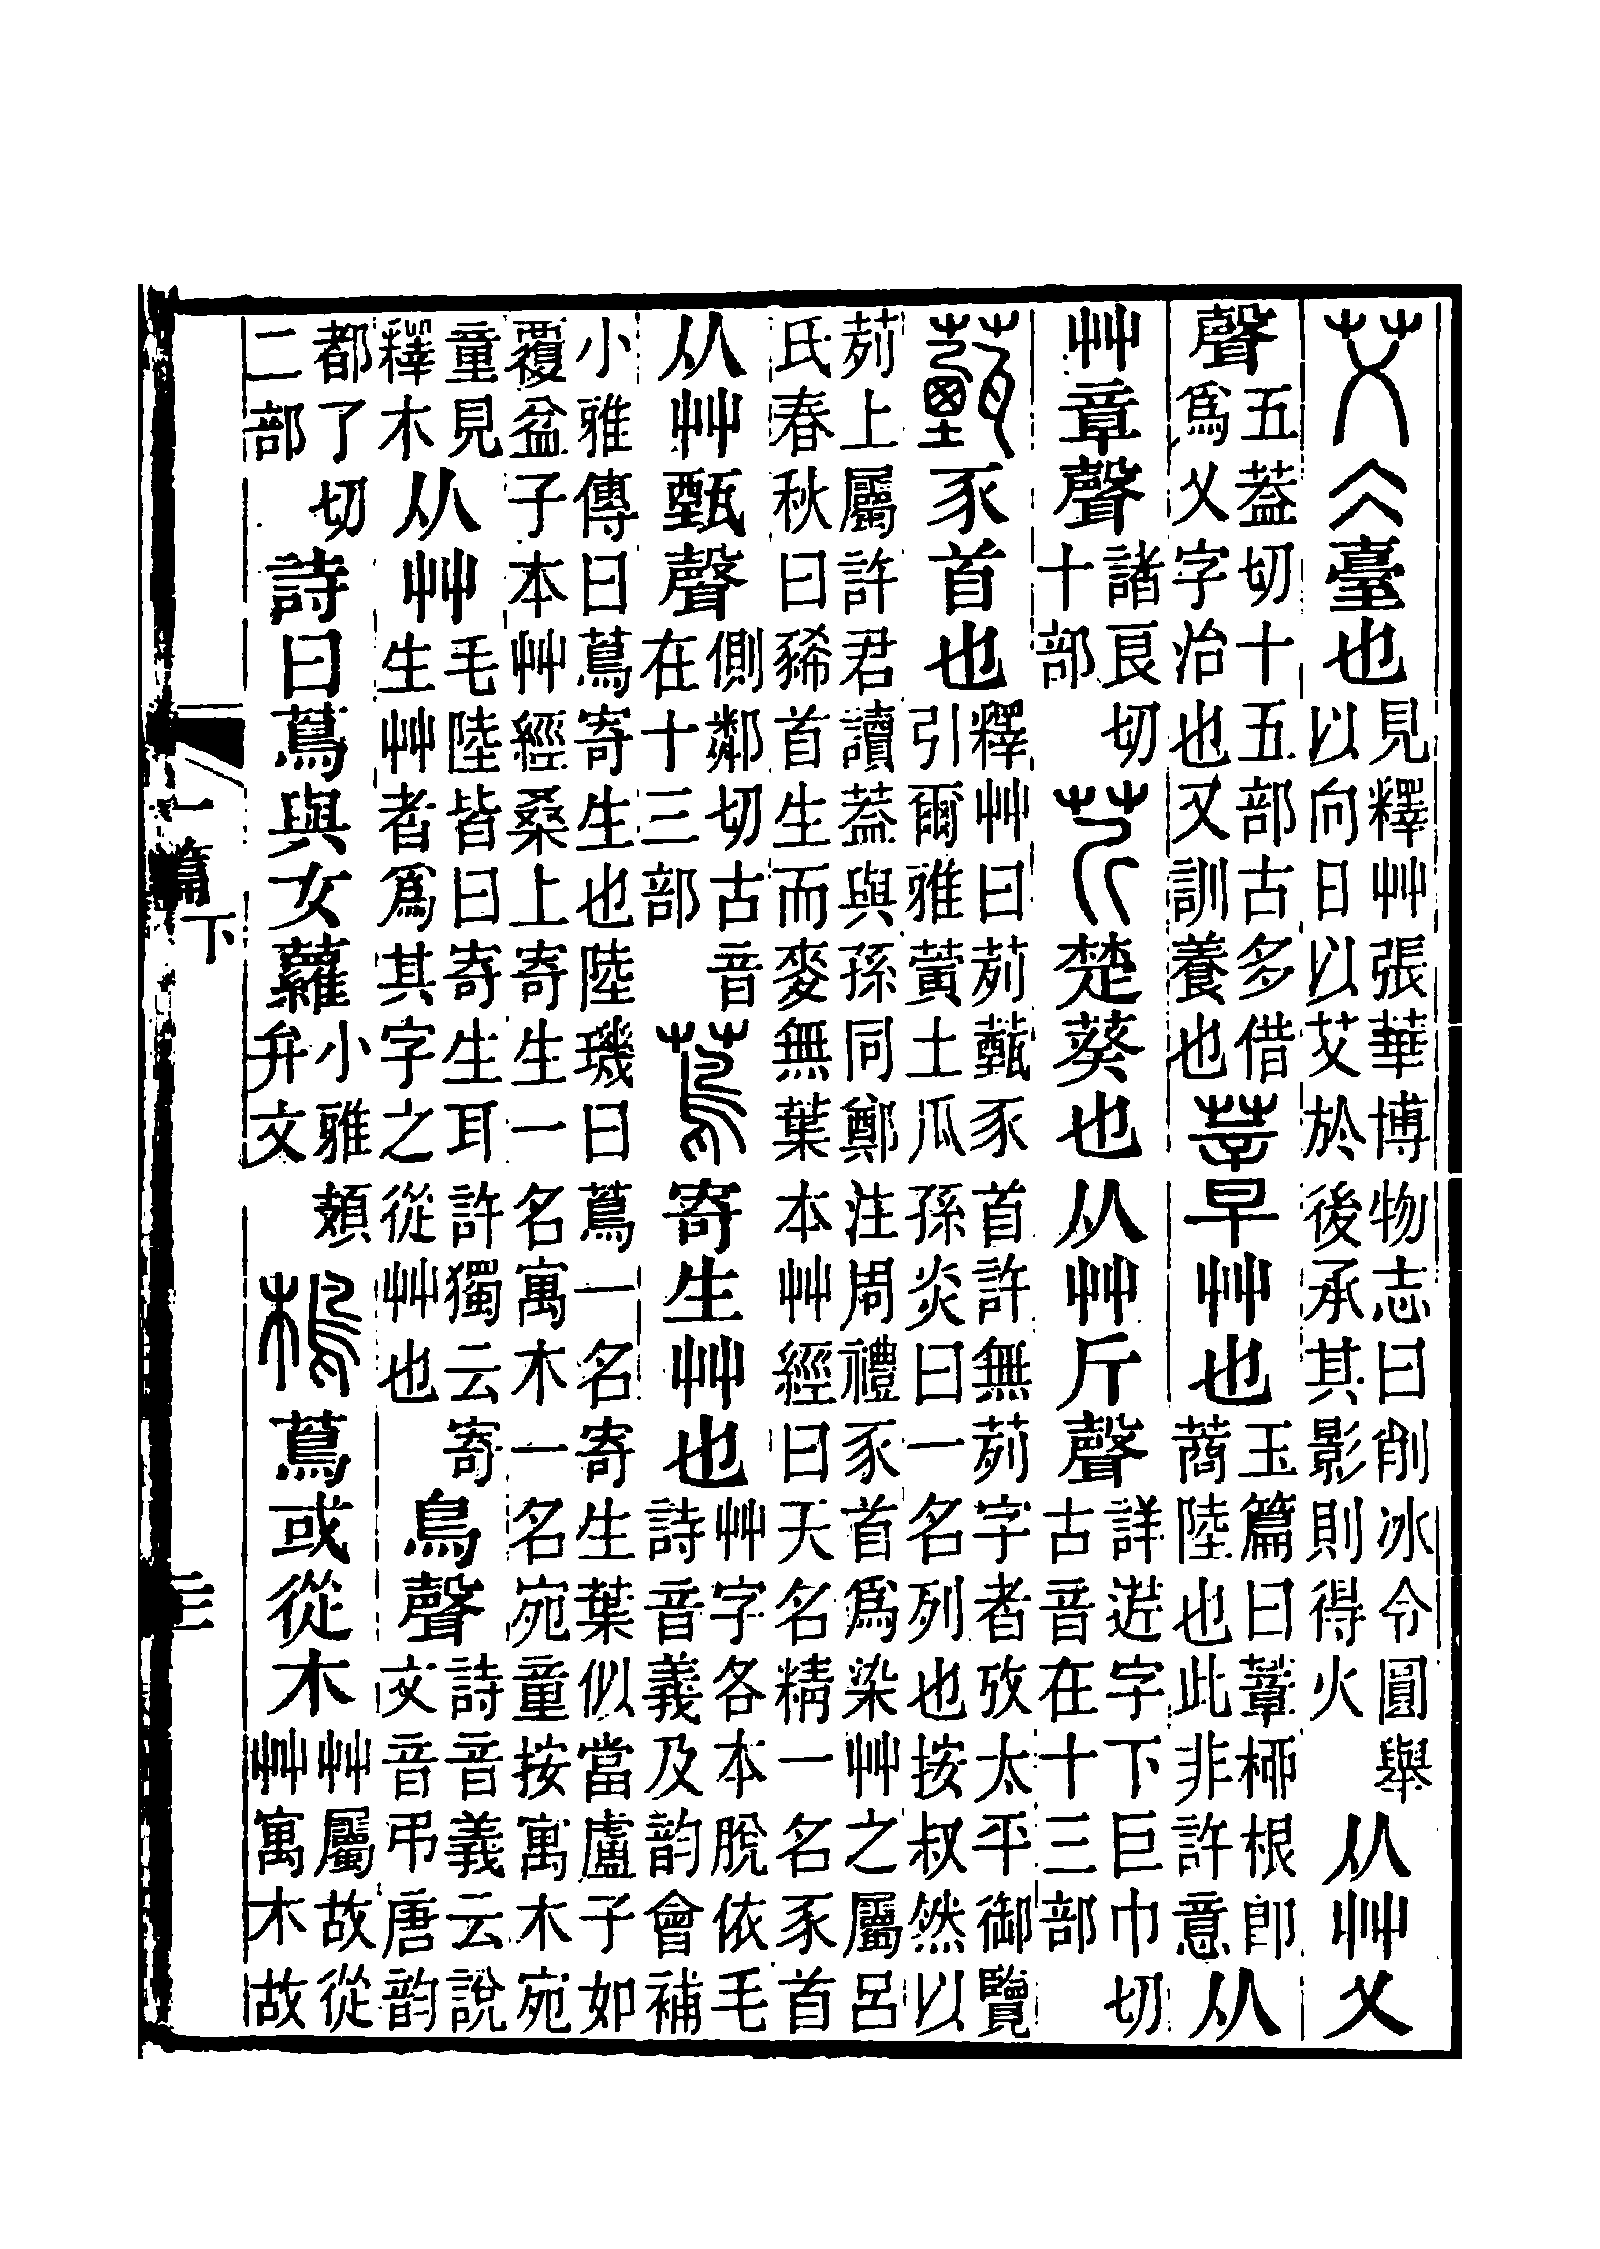 艾仌臺也見釋艸張華博物志曰削冰令圓舉以向日以艾於後承其影則得火从艸乂
聲五葢切十五部古多借爲乂字治也又訓養也蔁艸也玉篇曰蔁桺根卽蔏陸也此非許意从
艸章聲諸良切十部芹楚葵也从艸斤聲詳菦字下巨巾切古音在十三部
薽豕首也釋艸曰茢薽豕首許無茢字者攷太平御覽引爾雅黃土瓜孫炎曰一名列也按叔然以
茢上屬許君讀葢與孫同鄭注周禮豕首爲染艸之屬呂氏春秋曰豨首生而麥無葉本艸經曰天名精一名豕首
从艸甄聲側鄰切古音在十三部蔦寄生艸也艸字各本脫依毛詩音義及韵會補
小雅傳曰蔦寄生也陸璣曰蔦一名寄生葉似當盧子如覆盆子本艸經桑上寄生一名寓木一名宛童按寓木宛
童見釋木从艸毛陸皆曰寄生耳許獨云寄生艸者爲其字之從艸也鳥聲詩音義云說文音弔唐韵
都了切二部詩曰蔦與女蘿小雅頍弁文樢蔦或從木艸屬故從艸寓木故
一篇下